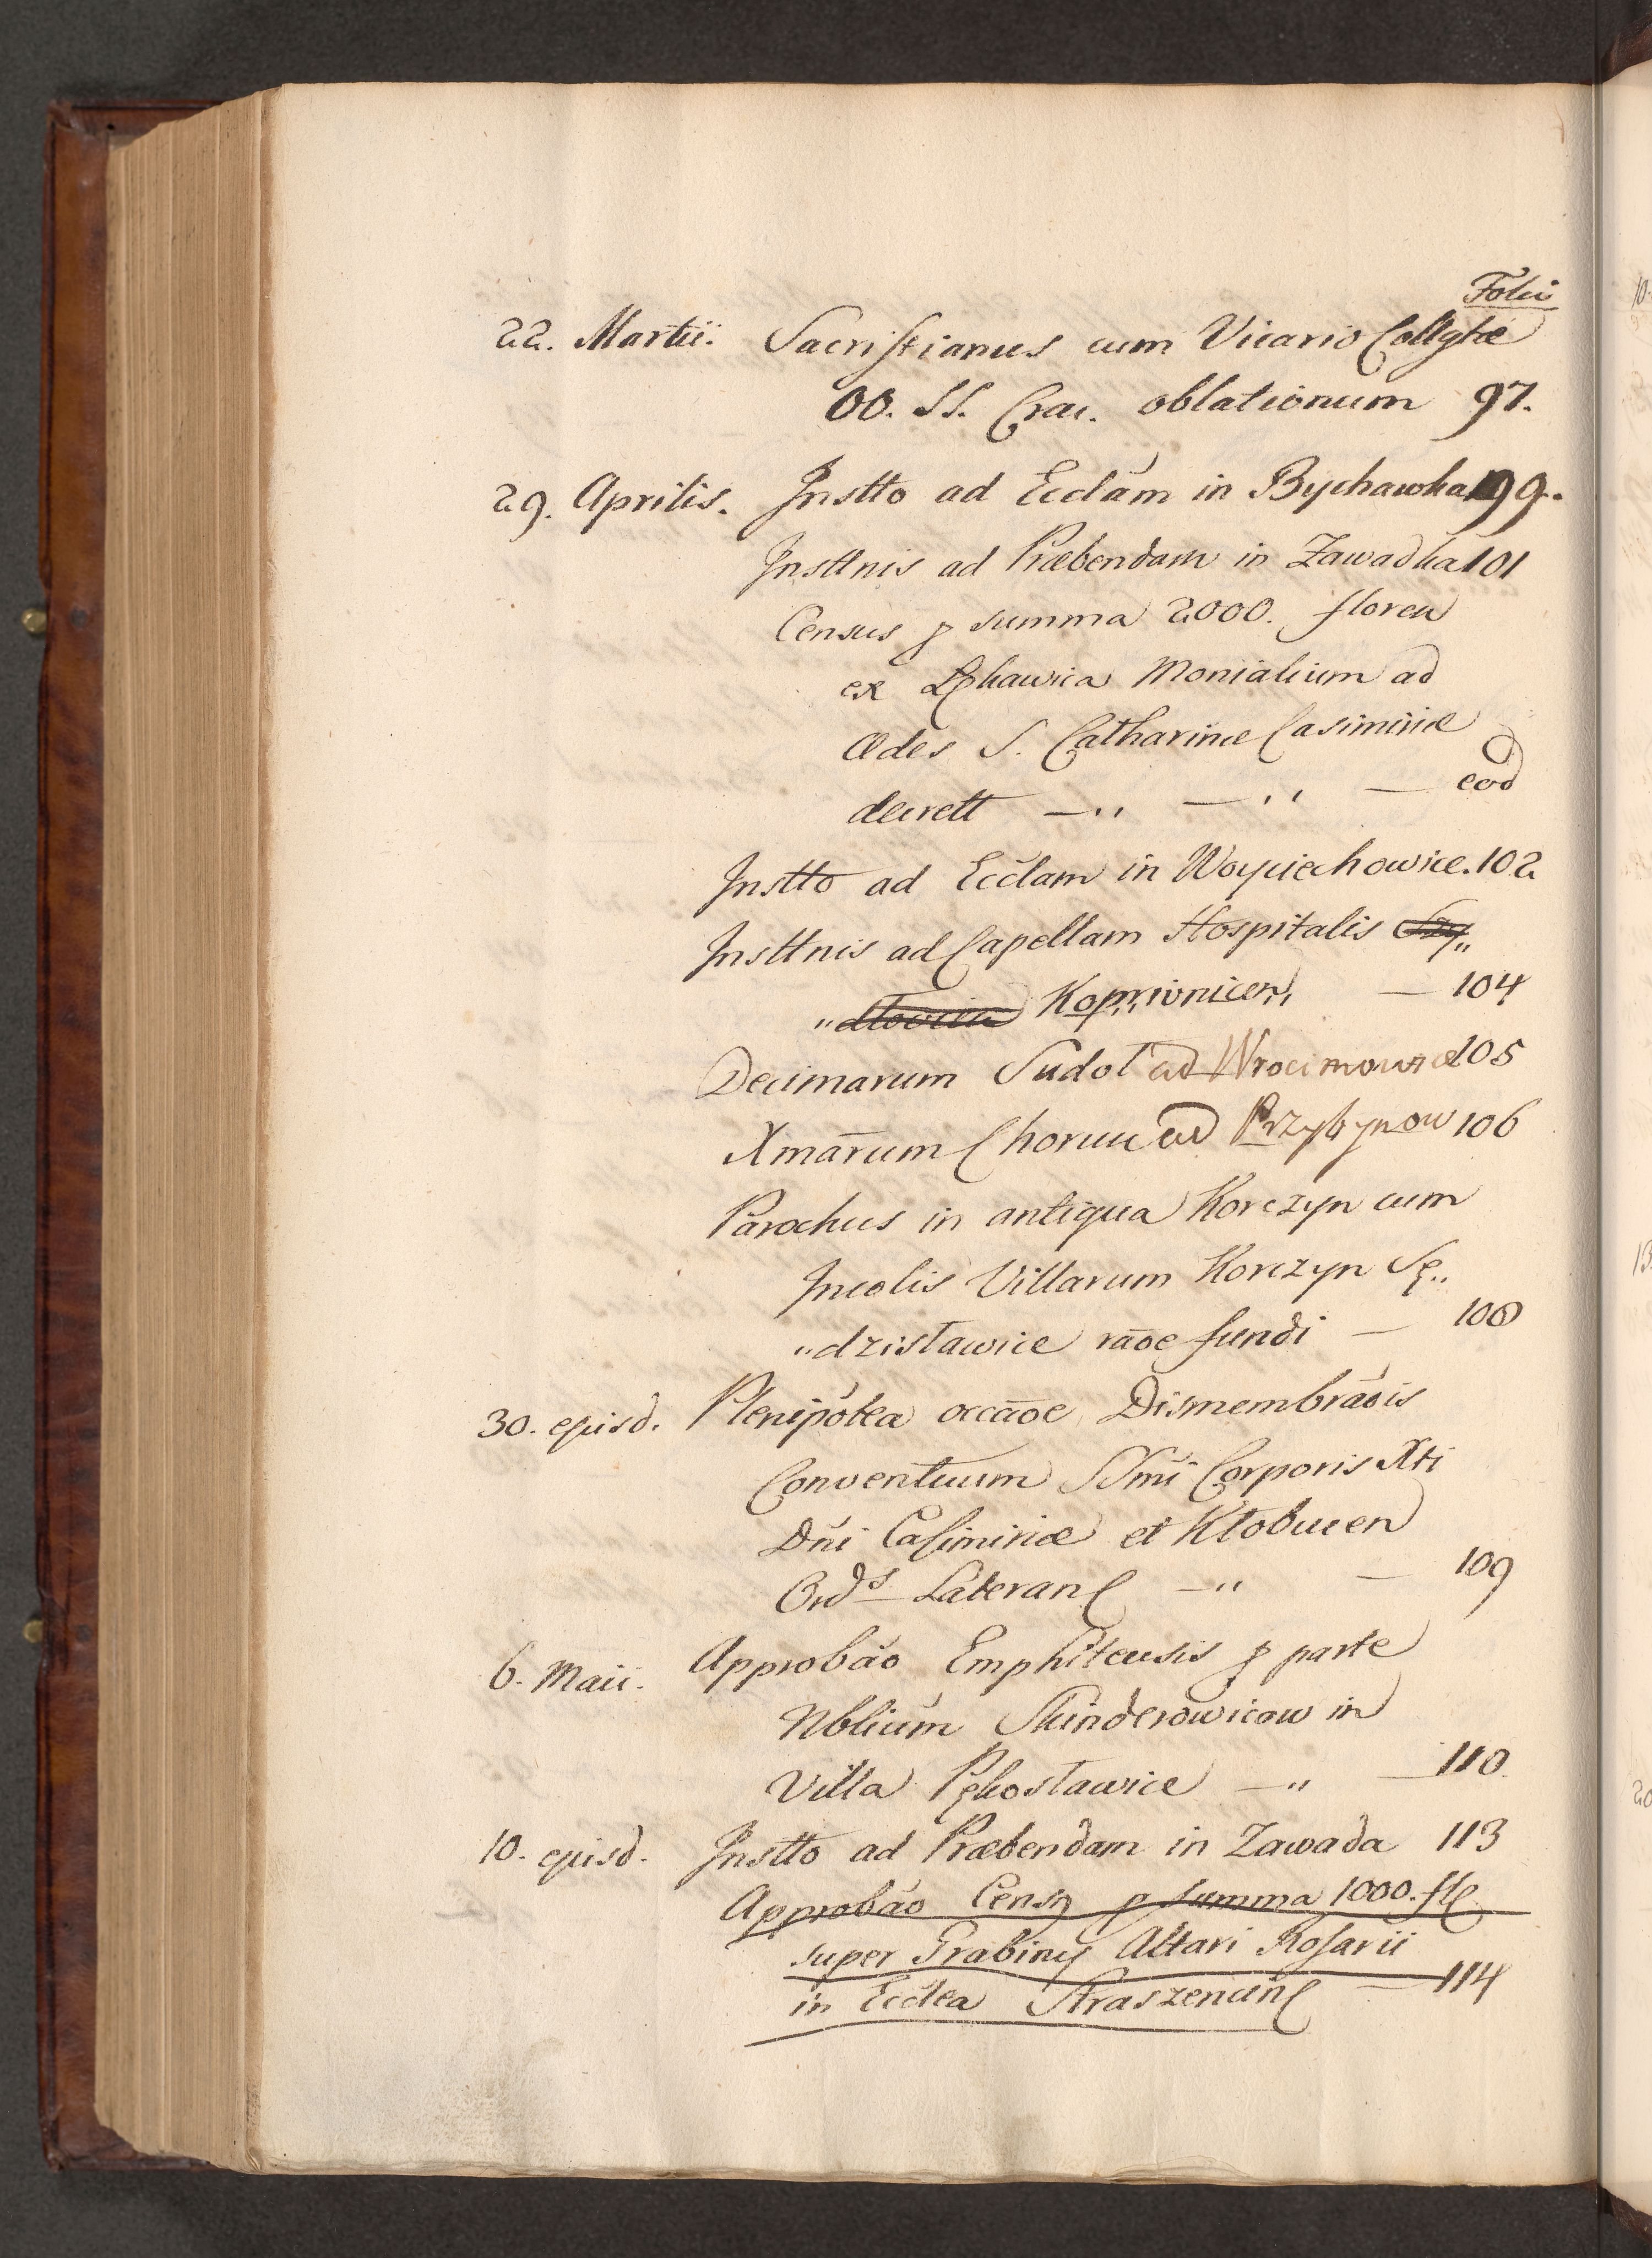 Folii
22. Martii. Sacristianus cum Vicario Collgtæ
OO. SS. Crac. oblationum 97.
29. Aprilis. Instto ad Eccl̄am in Bychawka 99.
Insttnis ad Præbendam in Zawadka 101
Census p summa 2000. floren
ex Łękawica Monialium ad
Ædes S. Catharinæ Casimiriæ
decrett —" —" — eod
Instto ad Eccl̄am in Woyciechowice. 102
Insttnis ad Capellam Hospitalis
Koprivnicen" — 104
Decimarum Sudoł ad Wrocimowice 105
Xmār̄um Choruu ad Przybynow 106
Parochus in antiqua Korczyn cum
Incolis Villarum Korczyn Sę"
"dzisławice rāōe fundi — 108
30. ejusd. Plenipōtea occāōe Dismembrāōis
Conventuum SSmi Corporis Xti
Dn̄i Casimiriæ et Kłobucen
Ords Lateran —" — 109
6. Maii. Approbāo Emphiteusis p parte
Nblium Skinderowicow in
Villa Pękosławice —" — 110.
10. ejusd. Instto ad Præbendam in Zawada 113
Approbāo Censq p summa 1000. fl
super Grabiny Altari Rosarii
in Ecclea Straszencin — 114